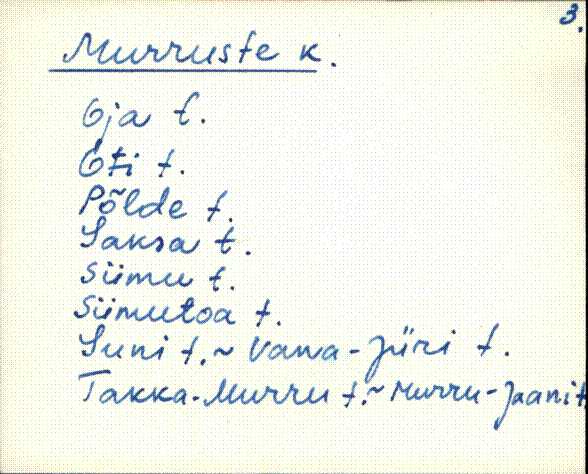 3.
Murruste k.
Oja t.
Oti t.
Põlde t.
Saksa t.
Siimu t.
Siimutoa t.
Suni t. ~ Vana-Jüri t.
Takka-Murru t. ~ Murru-Jaani t.